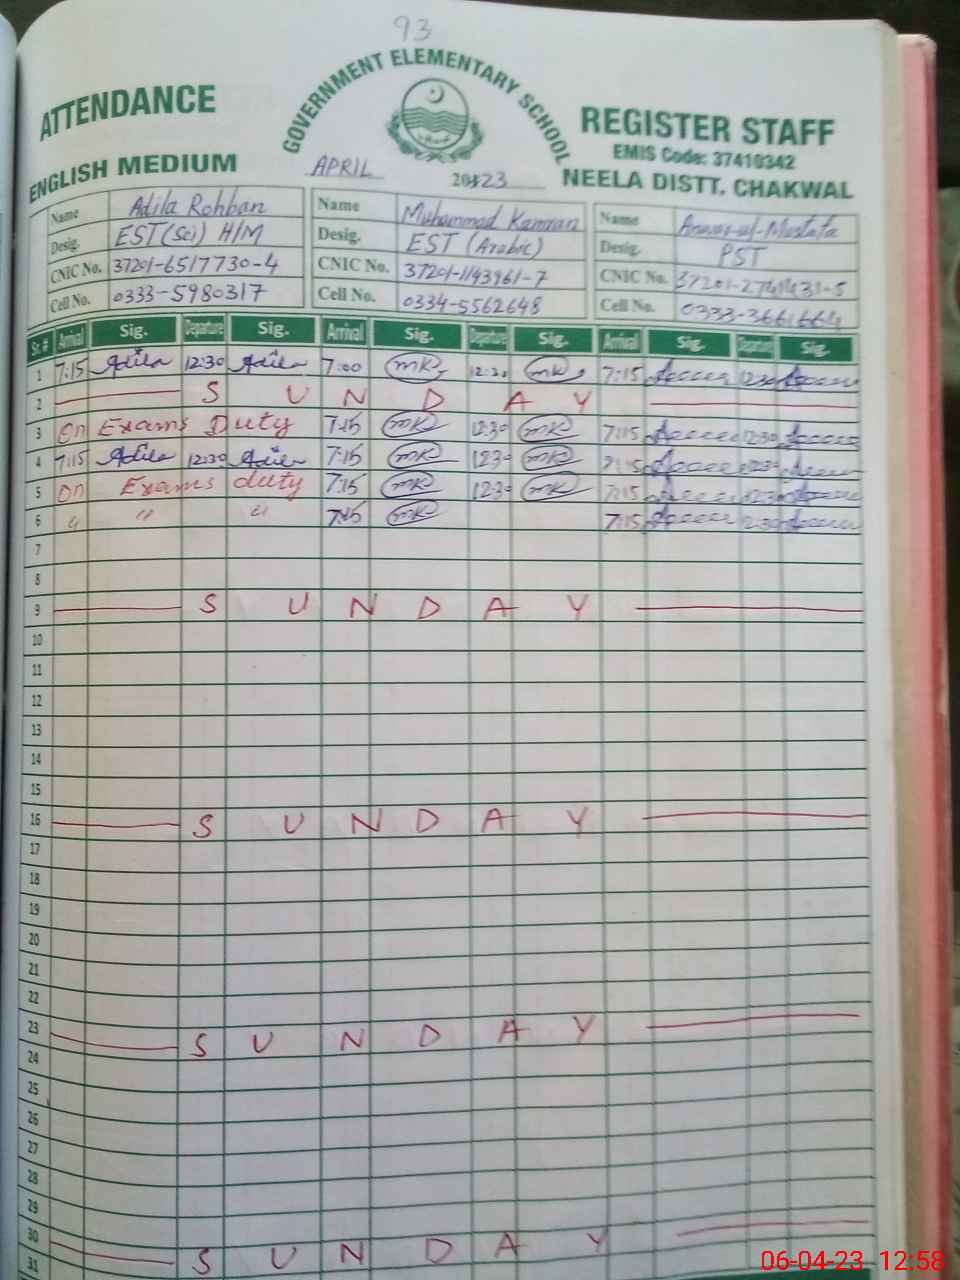 93
GOVERNMENT ELEMENTARY SCHOOL
ATTENDANCE
REGISTER STAFF
EMIS Code: 37410342
ENGLISH MEDIUM
APRIL
2023
NEELA DISTT. CHAKWAL
Name Adila Rohban Name Muhammad Kamran Name
Desig. EST (Sci) H/M Desig. EST (Arabic) Desig. PST
CNIC No. 37201-6517730-4 CNIC No. 37201-1143961-7 CNIC No.
Cell No. 0333-5980317 Cell No. 0334-5562648 Cell No. 0333-3661664
Sr. # Arrival Sig. Departure Sig. Arrival Sig. Departure Sig. Arrival Sig. Departure Sig.
1 7:15 Adila 12:30 Adila 7:00 MK 12:30 MK 7:15 12:30
2 S U N D A Y
3 On Exams Duty 7:15 MK 12:30 MK 7:15 12:30
4 7:15 Adila 12:30 Adila 7:15 MK 12:30 MK 7:15 12:30
5 On Exams duty 7:15 MK 12:30 MK 7:15 12:30
6 " " " 7:15 MK 7:15 12:30
7
8
9 S U N D A Y
10
11
12
13
14
15
16 S U N D A Y
17
18
19
20
21
22
23 S U N D A Y
24
25
26
27
28
29
30 S U N D A Y
31
06-04-23 12:58